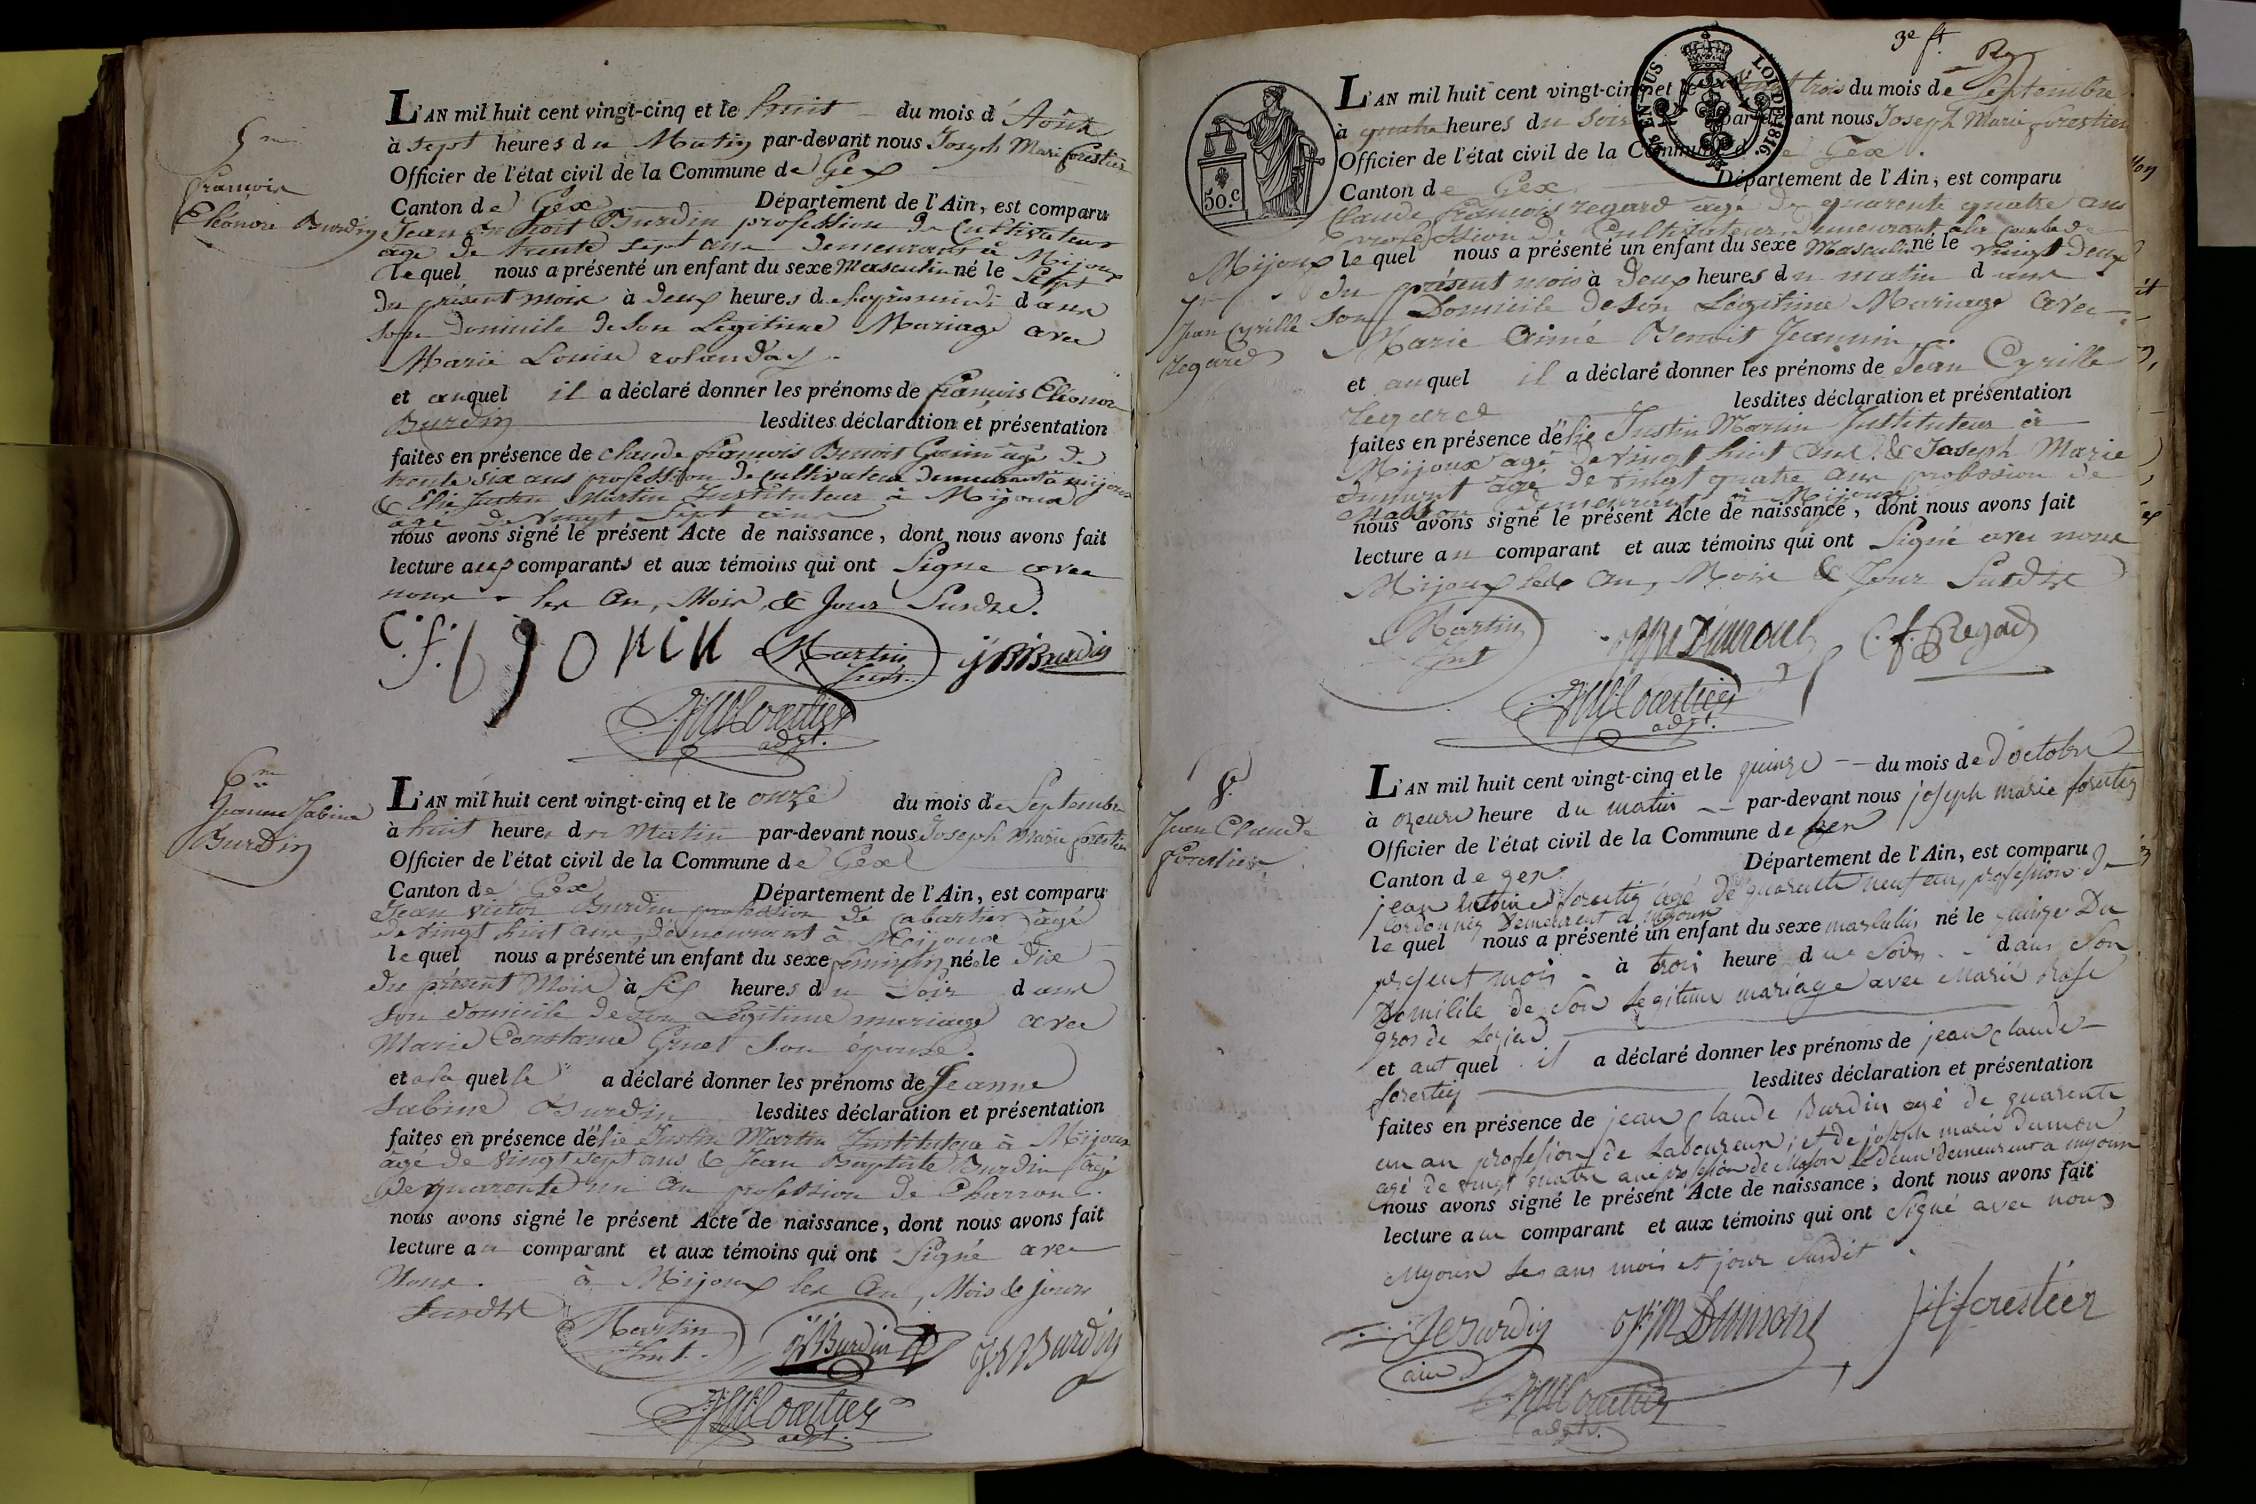 5me
françois
Eléonore Burdin
L'AN mil huit cent vingt-cinq et le huit du mois d'Août
à sept heures du Matin par-devant nous Joseph Marie forestier
Officier de l'état civil de la Commune de Gex
Canton de Gex Département de l'Ain, est comparu
Jean Burdin profession de Cultivateur
âgé de trente sept ans demeurant à Mijoux
lequel nous a présenté un enfant du sexe Masculin né le Sept
du présent mois à deux heures dans
son domicile de son Légitime Mariage avec
Marie Louise
et auquel il a déclaré donner les prénoms de françois Eléonor
Burdin lesdites déclaration et présentation
faites en présence de Claude françois Benoit âgé de
trente six ans profession de cultivateur demeurant à mijoux
& Elie Justin Martin Instituteur à Mijoux
âgé de vingt sept ans
nous avons signé le présent Acte de naissance, dont nous avons fait
lecture aux comparants et aux témoins qui ont Signé avec
nous les an, Mois & Jour Susdits.
Martin
Inst.
J B Burdin
adjt.
6me
Jeanne Sabine
Burdin
L'AN mil huit cent vingt-cinq et le onze du mois de Septembre
à huit heures du Matin par-devant nous Joseph Marie forestier
Officier de l'état civil de la Commune de Gex
Canton de Gex Département de l'Ain, est comparu
Jean Victor Burdin profession de Cabartier âgé
de vingt huit ans, demeurant à Mijoux
lequel nous a présenté un enfant du sexe féminin né le dix
du présent Mois à Six heures du Soir dans
son domicile de son Légitime mariage avec
Marie Constance Grnet son épouse.
et a la quelle il a déclaré donner les prénoms de Jeanne
Sabine Burdin lesdites déclaration et présentation
faites en présence d'Elie Justin Martin Instituteur à Mijoux
âgé de vingt sept ans & Jean Baptiste Burdin âgé
de quarante un an profession de Charron.
nous avons signé le présent Acte de naissance, dont nous avons fait
lecture au comparant et aux témoins qui ont Signé avec
Nous. à Mijoux les an, Mois & jour
Susdits
Martin
Inst.
JV Burdin
J.B Burdin
adjt.
3e ft.
50.c
LOI DE 1816.
L'AN mil huit cent vingt-cinq et le vingt trois du mois de Septembre
à quatre heures du Soir par-devant nous Joseph Marie forestier
Officier de l'état civil de la Commune de Gex.
Canton de Gex Département de l'Ain, est comparu
Claude françois regard âgé de quarente quatre ans
profession de Cultivateur, demeurant à la combe de
Mijoux lequel nous a présenté un enfant du sexe Masculin né le vingt deux
du présent mois à deux heures du matin dans
son Domicile de son Légitime Mariage avec
Marie Aimé Benoit Jeannin.
7me
Jean Cyrille
regard
et auquel il a déclaré donner les prénoms de Jean Cyrille
regard lesdites déclaration et présentation
faites en présence d'Elie Justin Martin Instituteur à
Mijoux âgé de vingt huit ans & Joseph Marie
Dumont âgé de vingt quatre ans profession de
Masson demeurant à Mijoux
nous avons signé le présent Acte de naissance, dont nous avons fait
lecture au comparant et aux témoins qui ont Signé avec nous
Mijoux les An, Mois & Jour Susdits
Martin
Inst
JM Dumont
C.f. Regad
adjt.
8.
Jean Claude
forestier
L'AN mil huit cent vingt-cinq et le quinze du mois de d'octobre
à onzeure heure du matin par-devant nous joseph marie forestier
Officier de l'état civil de la Commune de gex
Canton de gex Département de l'Ain, est comparu
jean antoine forestier âgé de quarante neuf ans, profession de
Cordonnier Demeurent à Mijoux
lequel nous a présenté un enfant du sexe masculin né le quinze Du
present mois à trois heure du Soir dans Son
Domicile de Son legitime mariage avec Marie Rose
gros de
et aut quel il a déclaré donner les prénoms de jean claude
forestier lesdites déclaration et présentation
faites en présence de jean Claude Burdin agé de quarente
un an profesion de Laboureur; et de joseph marie dumon
agé de vingt quatre ans profesion de Mason demeurent a myoux
nous avons signé le présent Acte de naissance, dont nous avons fait
lecture au comparant et aux témoins qui ont Signé avec nous
Myoux les ans mois et jour Susdit
JC Burdin
JM Dumont
J:A:forestier
adjt.